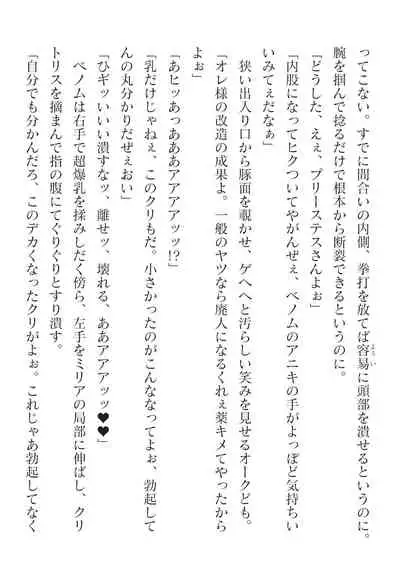 ってこない。すでに間合いの内側、拳打を放てば容易に頭部を潰せるというのに。
腕を掴んで捻るだけで根本から断裂できるというのに。
「どうした、えぇ、プリーステスさんよぉ」
「内股になってヒクついてやがんぜぇ、ベノムのアニキの手がよっぽど気持ちい
いみてぇだなぁ」
狭い出入り口から豚面を覗かせ、ゲヘへと汚らしい笑みを見せるオークども。
「オレ様の改造の成果よ。一般のヤツなら廃人になるくれぇ薬キメてやったから
よぉ」
「あヒッあっああアアアアッッ!?」
「乳だけじゃねぇ、このクリもだ。小さかったのがこんななってよぉ、勃起して
んの丸分かりだぜぇおい」
「ひギッいいい潰すなッ、離せッ、壊れる、ああアアアッッ♥♥」
ベノムは右手で超爆乳を揉みしだく傍ら、左手をミリアの局部に伸ばし、クリ
トリスを摘まんで指の腹にてぐりぐりとすり潰す。
「自分でも分かんだろ、このデカくなったクリがよぉ。これじゃあ勃起してなく